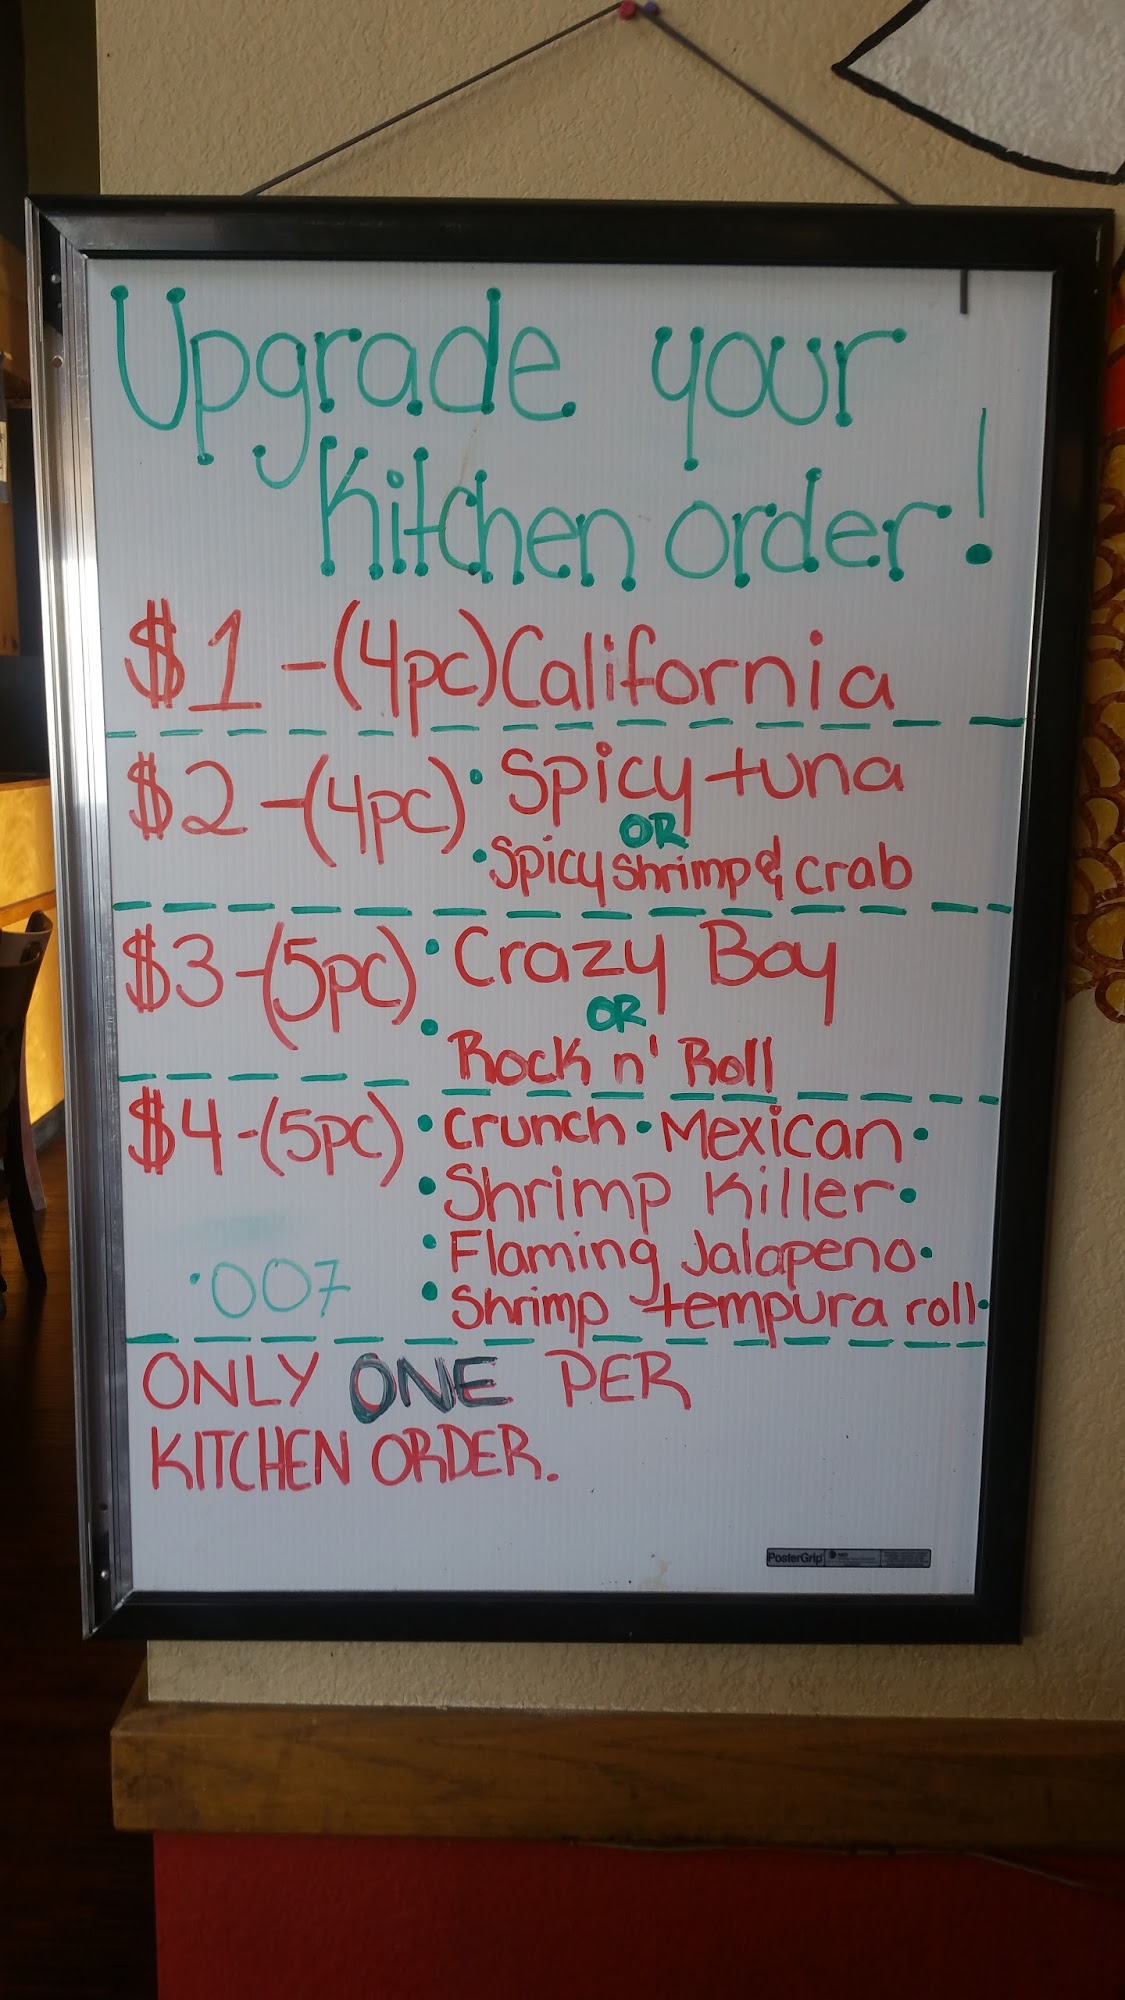 Upgrade your
Kitchen order!
$1 - (4pc) California
$2 - (4pc) • Spicy tuna
OR
• Spicy shrimp & crab
$3 - (5pc) • Crazy Boy
OR
• Rock n' Roll
$4 - (5pc) • Crunch • Mexican •
• Shrimp Killer •
• Flaming Jalapeno •
• 007
• Shrimp tempura roll •
ONLY ONE PER
KITCHEN ORDER.
PosterGrip